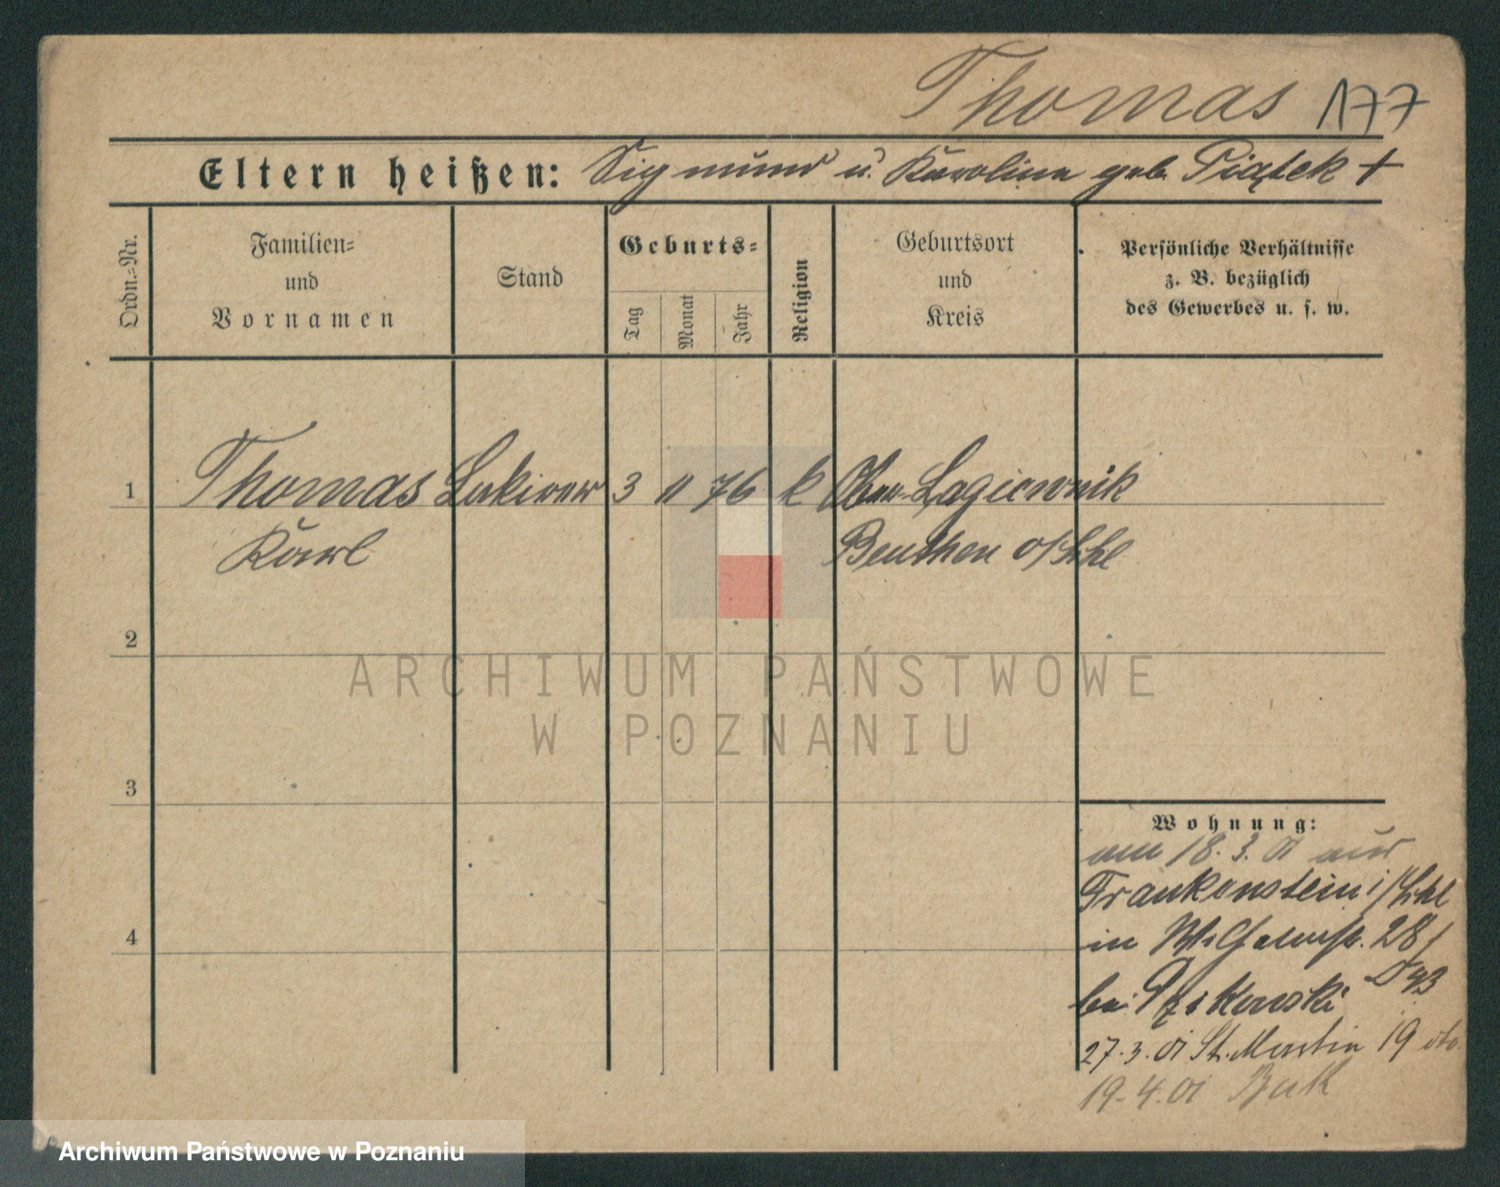 Thomas 177
Eltern heißen: Sigmund u. Karolina geb. Piątek +
Ordn.=Nr.
Familien=
und
Vornamen
Stand
Geburts=
Tag
Monat
Jahr
Religion
Geburtsort
und
Kreis
Persönliche Verhältnisse
z. B. bezüglich
des Gewerbes u. s. w.
1 Thomas Lakirer 3 11 76 k Ober-Lagiewnik
Karl Beuthen o/Schl
2
3
4
Wohnung:
am 18.3.01 aus
Frankenstein i/Schl
in Wilhelmstr. 28/
bei
27.3.01 St. Martin 19
19.4.01 Buk
ARCHIWUM PAŃSTWOWE
W POZNANIU
Archiwum Państwowe w Poznaniu